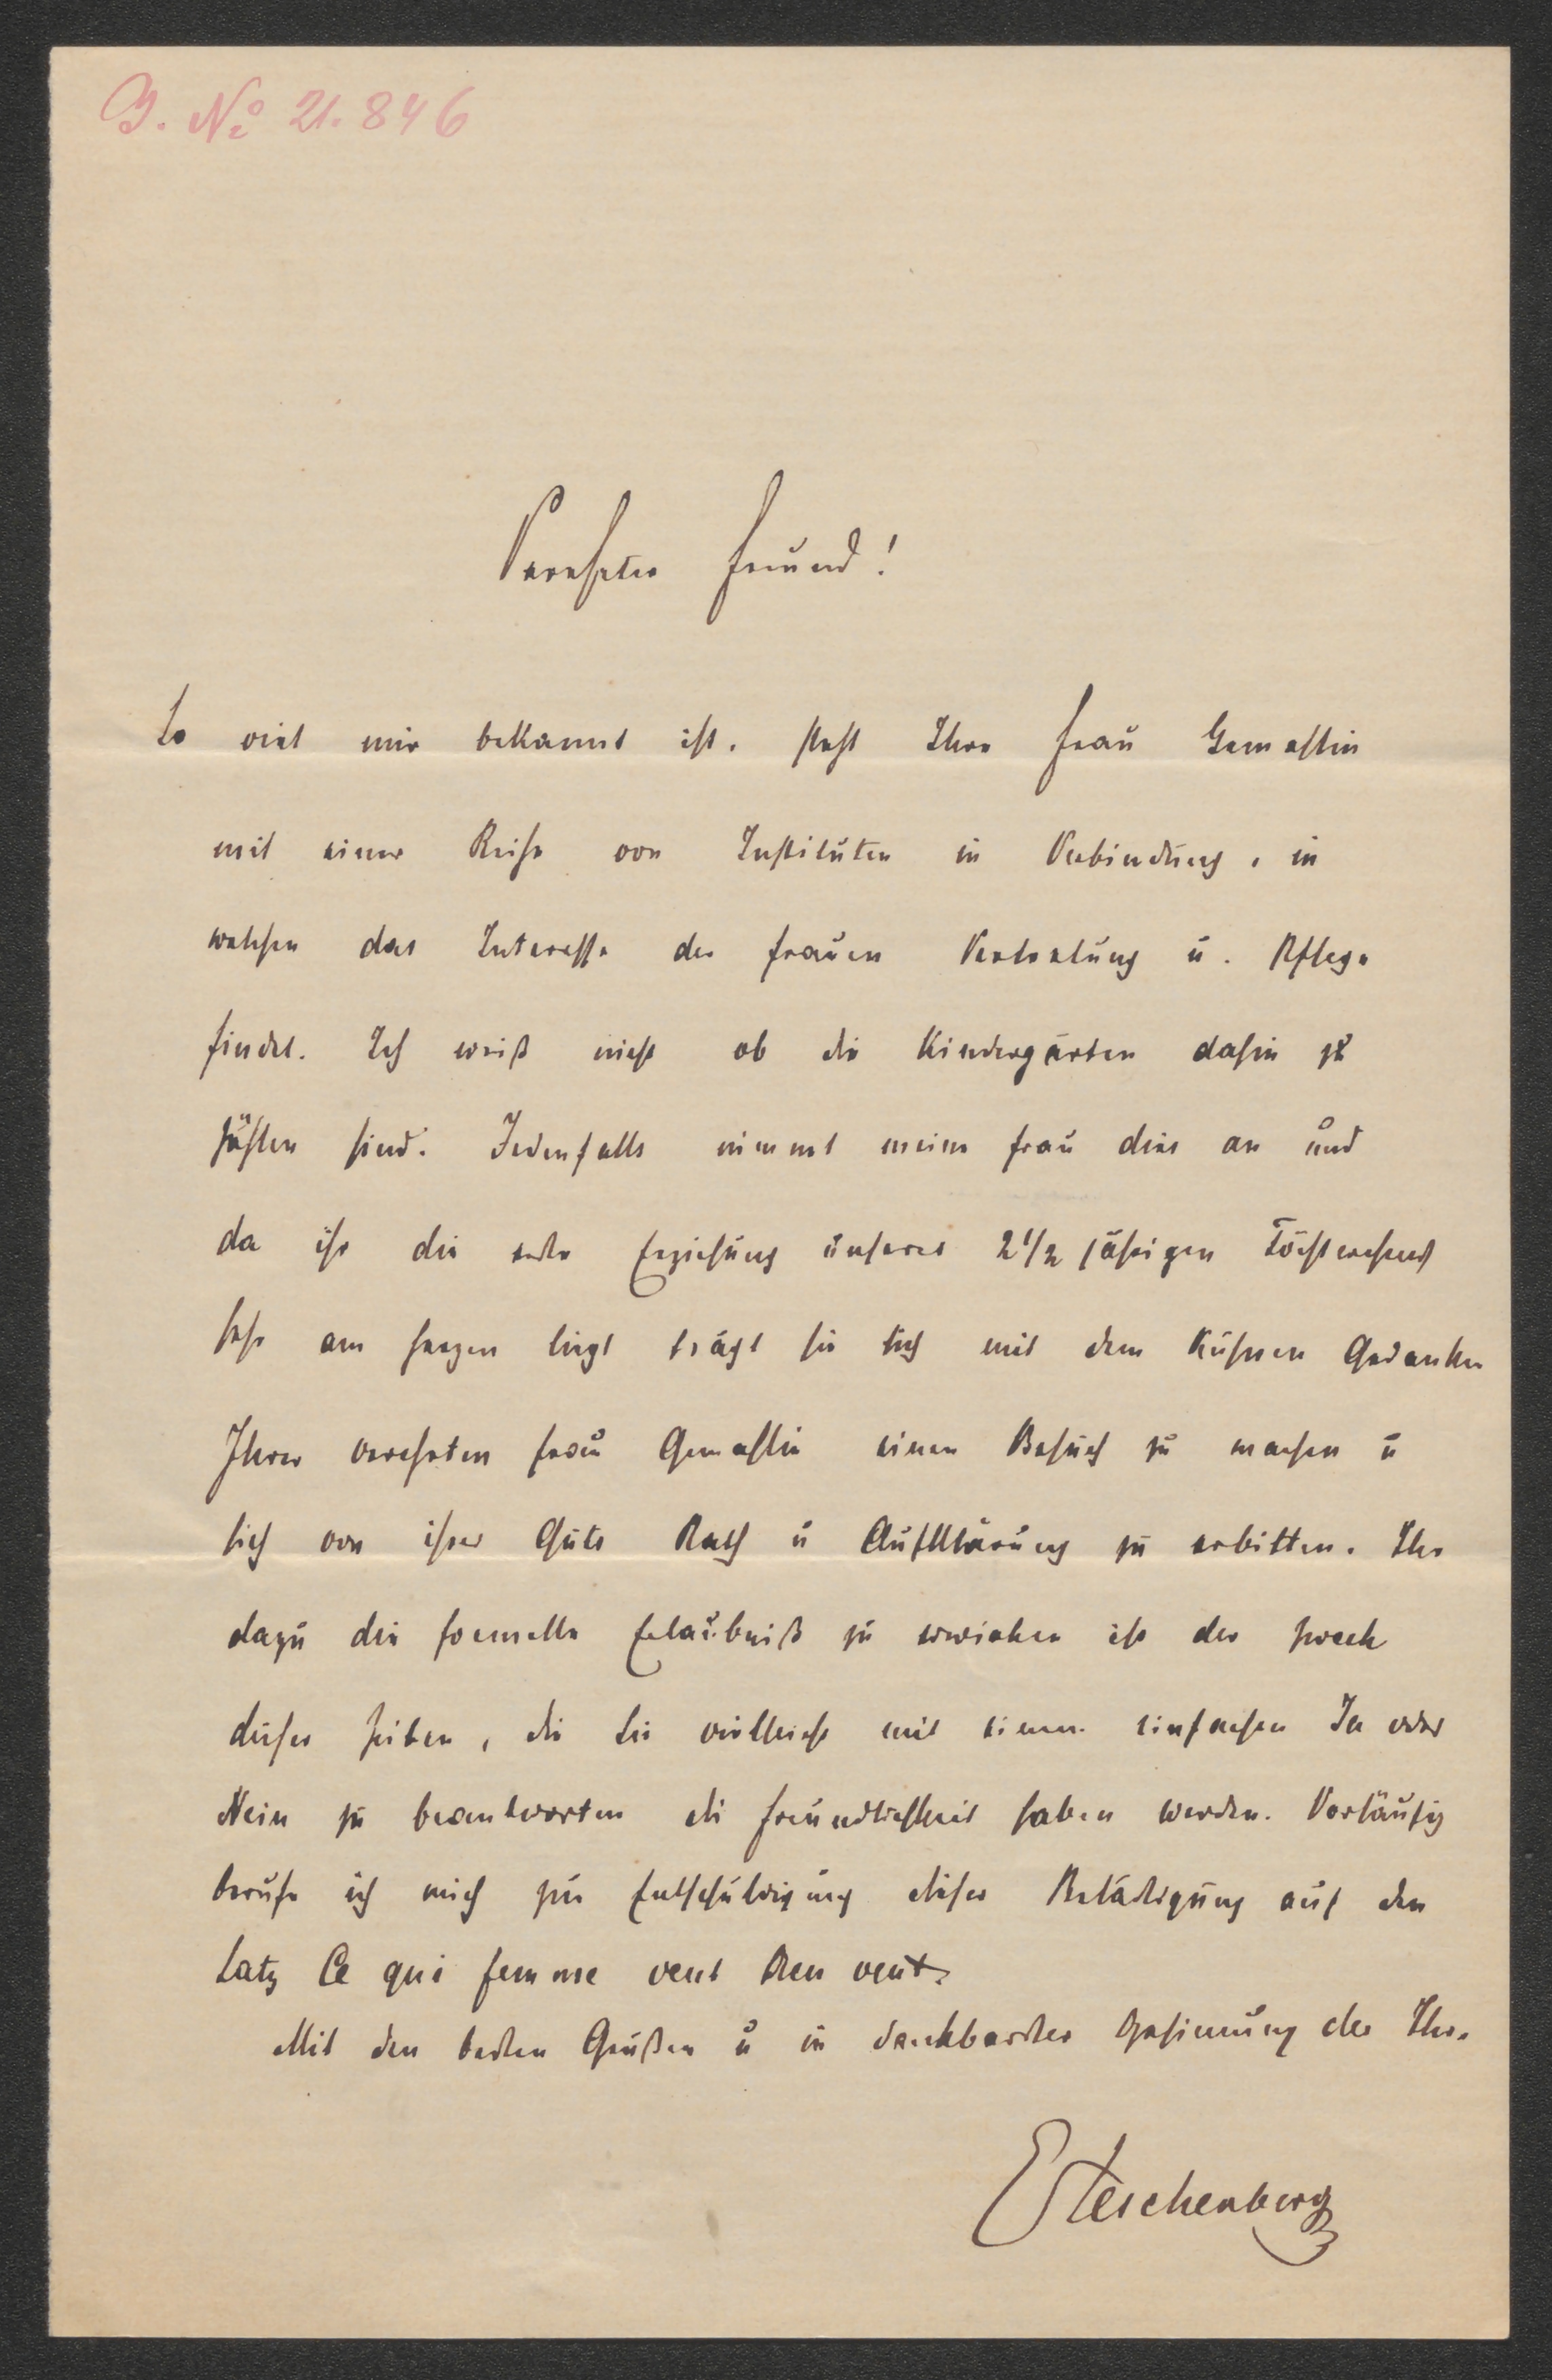 J. No 21.846
Verehrter Freund!
So viel mir bekannt ist, steht Ihre Frau Gemahlin
mit einer Reihe von Instituten in Verbindung, in
welchen das Interesse der Frauen Vertretung u. Pflege
findet. Ich weiß nicht ob die Kindergärten dahin zu
zählen sind. Jedenfalls nimmt meine Frau dies an und
da ihr die erste Erziehung unseres 2 1/2 jährigen Töchterchens
sehr am Herzen liegt trägt sie sich mit dem kühnen Gedanken
Ihrer verehrten Frau Gemahlin einen Besuch zu machen u
sich von ihrer Güte Rath u Aufklärung zu erbitten. Ihr
dazu die formelle Erlaubniß zu erwirken ist der Zweck
dieser Zeilen, die Sie vielleicht mit einem einfachen Ja oder
Nein zu beantworten die Freundlichkeit haben werden. Vorläufig
berufe ich mich zur Entschuldigung dieser Belästigung auf den
Satz Ce qui femme veut Dieu veut.
Mit den besten Grüßen u in dankbarster Gesinnung der Ihre
ETeschenberg